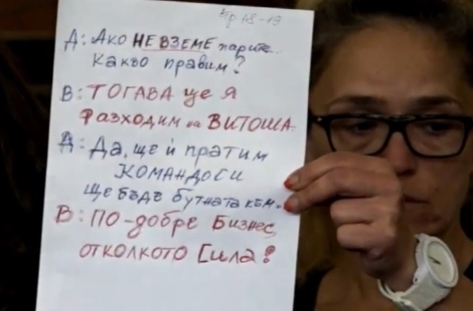 стр 18-19
Д: Ако НЕ ВЗЕМЕ парите..
Какво правим?
В: ТОГАВА ще Я
РАЗХОДИМ на ВИТОША.
Д: Да, ще ѝ пратим
КОМАНДОСИ
ще бъде бутната към..
В: ПО-ДОБРЕ Бизнес,
ОТКОЛКОТО Сила!